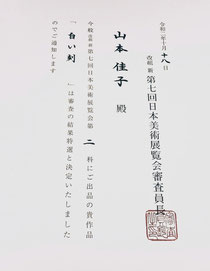 令和二年十月十八日
改組 新 第七回日本美術展覧会審査員長
山本佳子 殿
今般改組 新 第七回日本美術展覧会第二科にご出品の貴作品
「白い刻」は審査の結果特選と決定いたしました
のでご通知します